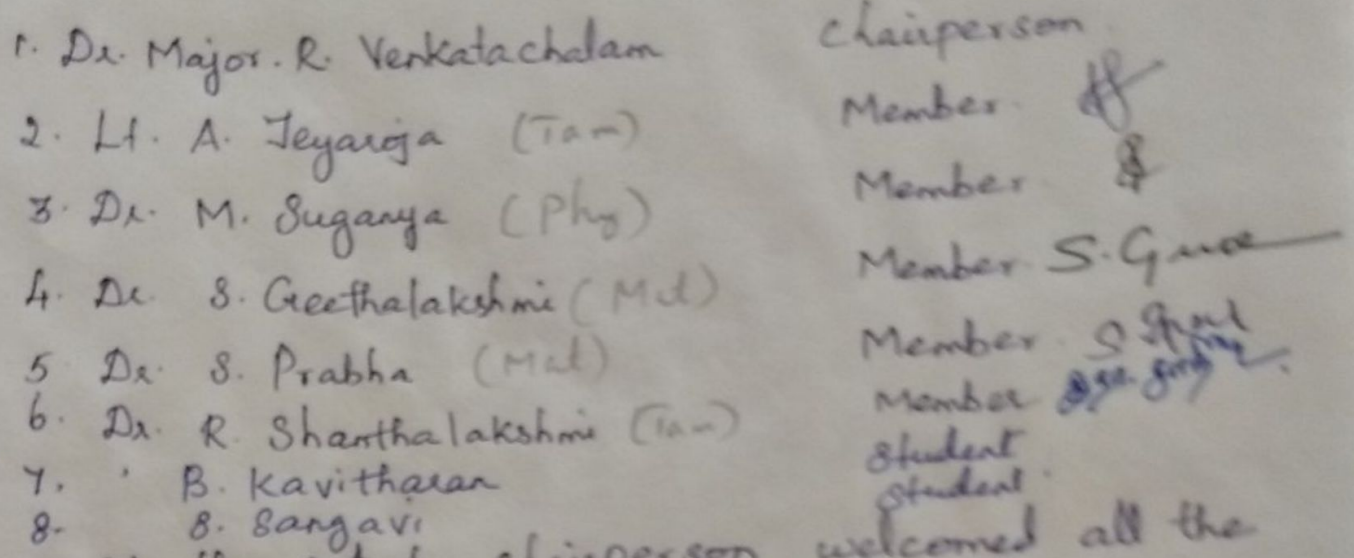 1. Dr. Major. R. Venkatachalam Chairperson
2. Lt. A. Jeyaroja (Tam) Member
3. Dr. M. Suganya (Phy) Member
4. Dr. S. Geethalakshmi (Mat) Member S.
5 Dr. S. Prabha (Mat) Member S
6. Dr. R. Shanthalakshmi (Tam) Member
7. B. Kavitharan Student
8- S. Sangavi Student
chairperson welcomed all the